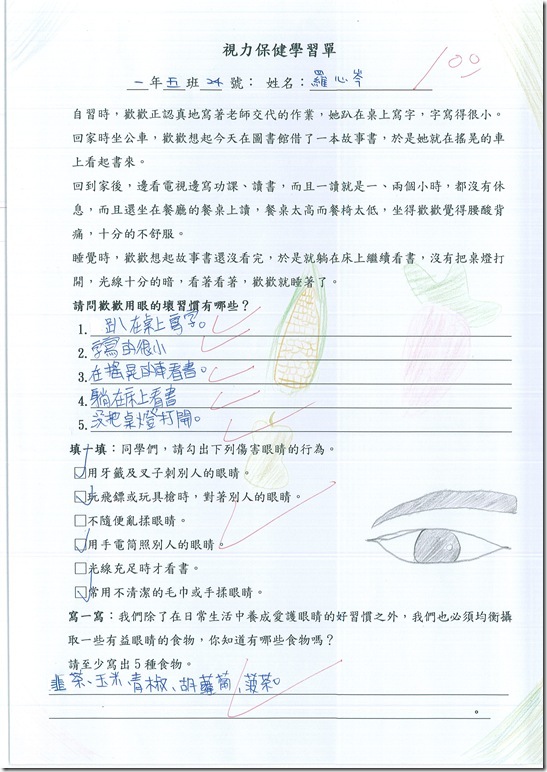 視力保健學習單
一年五班24號： 姓名：羅心岑
100
自習時，歡歡正認真地寫著老師交代的作業，她趴在桌上寫字，字寫得很小。
回家時坐公車，歡歡想起今天在圖書館借了一本故事書，於是她就在搖晃的車
上看起書來。
回到家後，邊看電視邊寫功課、讀書，而且一讀就是一、兩個小時，都沒有休
息，而且還坐在餐廳的餐桌上讀，餐桌太高而餐椅太低，坐得歡歡覺得腰酸背
痛，十分的不舒服。
睡覺時，歡歡想起故事書還沒看完，於是就躺在床上繼續看書，沒有把桌燈打
開，光線十分的暗，看著看著，歡歡就睡著了。
請問歡歡用眼的壞習慣有哪些？
1. 趴在桌上寫字。
2. 字寫的很小
3. 在搖晃的車看書。
4. 躺在床上看書
5. 沒把桌燈打開。
填一填：同學們，請勾出下列傷害眼睛的行為。
☑用牙籤及叉子刺別人的眼睛。
☑玩飛鏢或玩具槍時，對著別人的眼睛。
□不隨便亂揉眼睛。
☑用手電筒照別人的眼睛。
□光線充足時才看書。
☑常用不清潔的毛巾或手揉眼睛。
寫一寫：我們除了在日常生活中養成愛護眼睛的好習慣之外，我們也必須均衡攝
取一些有益眼睛的食物，你知道有哪些食物嗎？
請至少寫出5種食物。
韭菜、玉米、青椒、胡蘿蔔、菠菜。
。